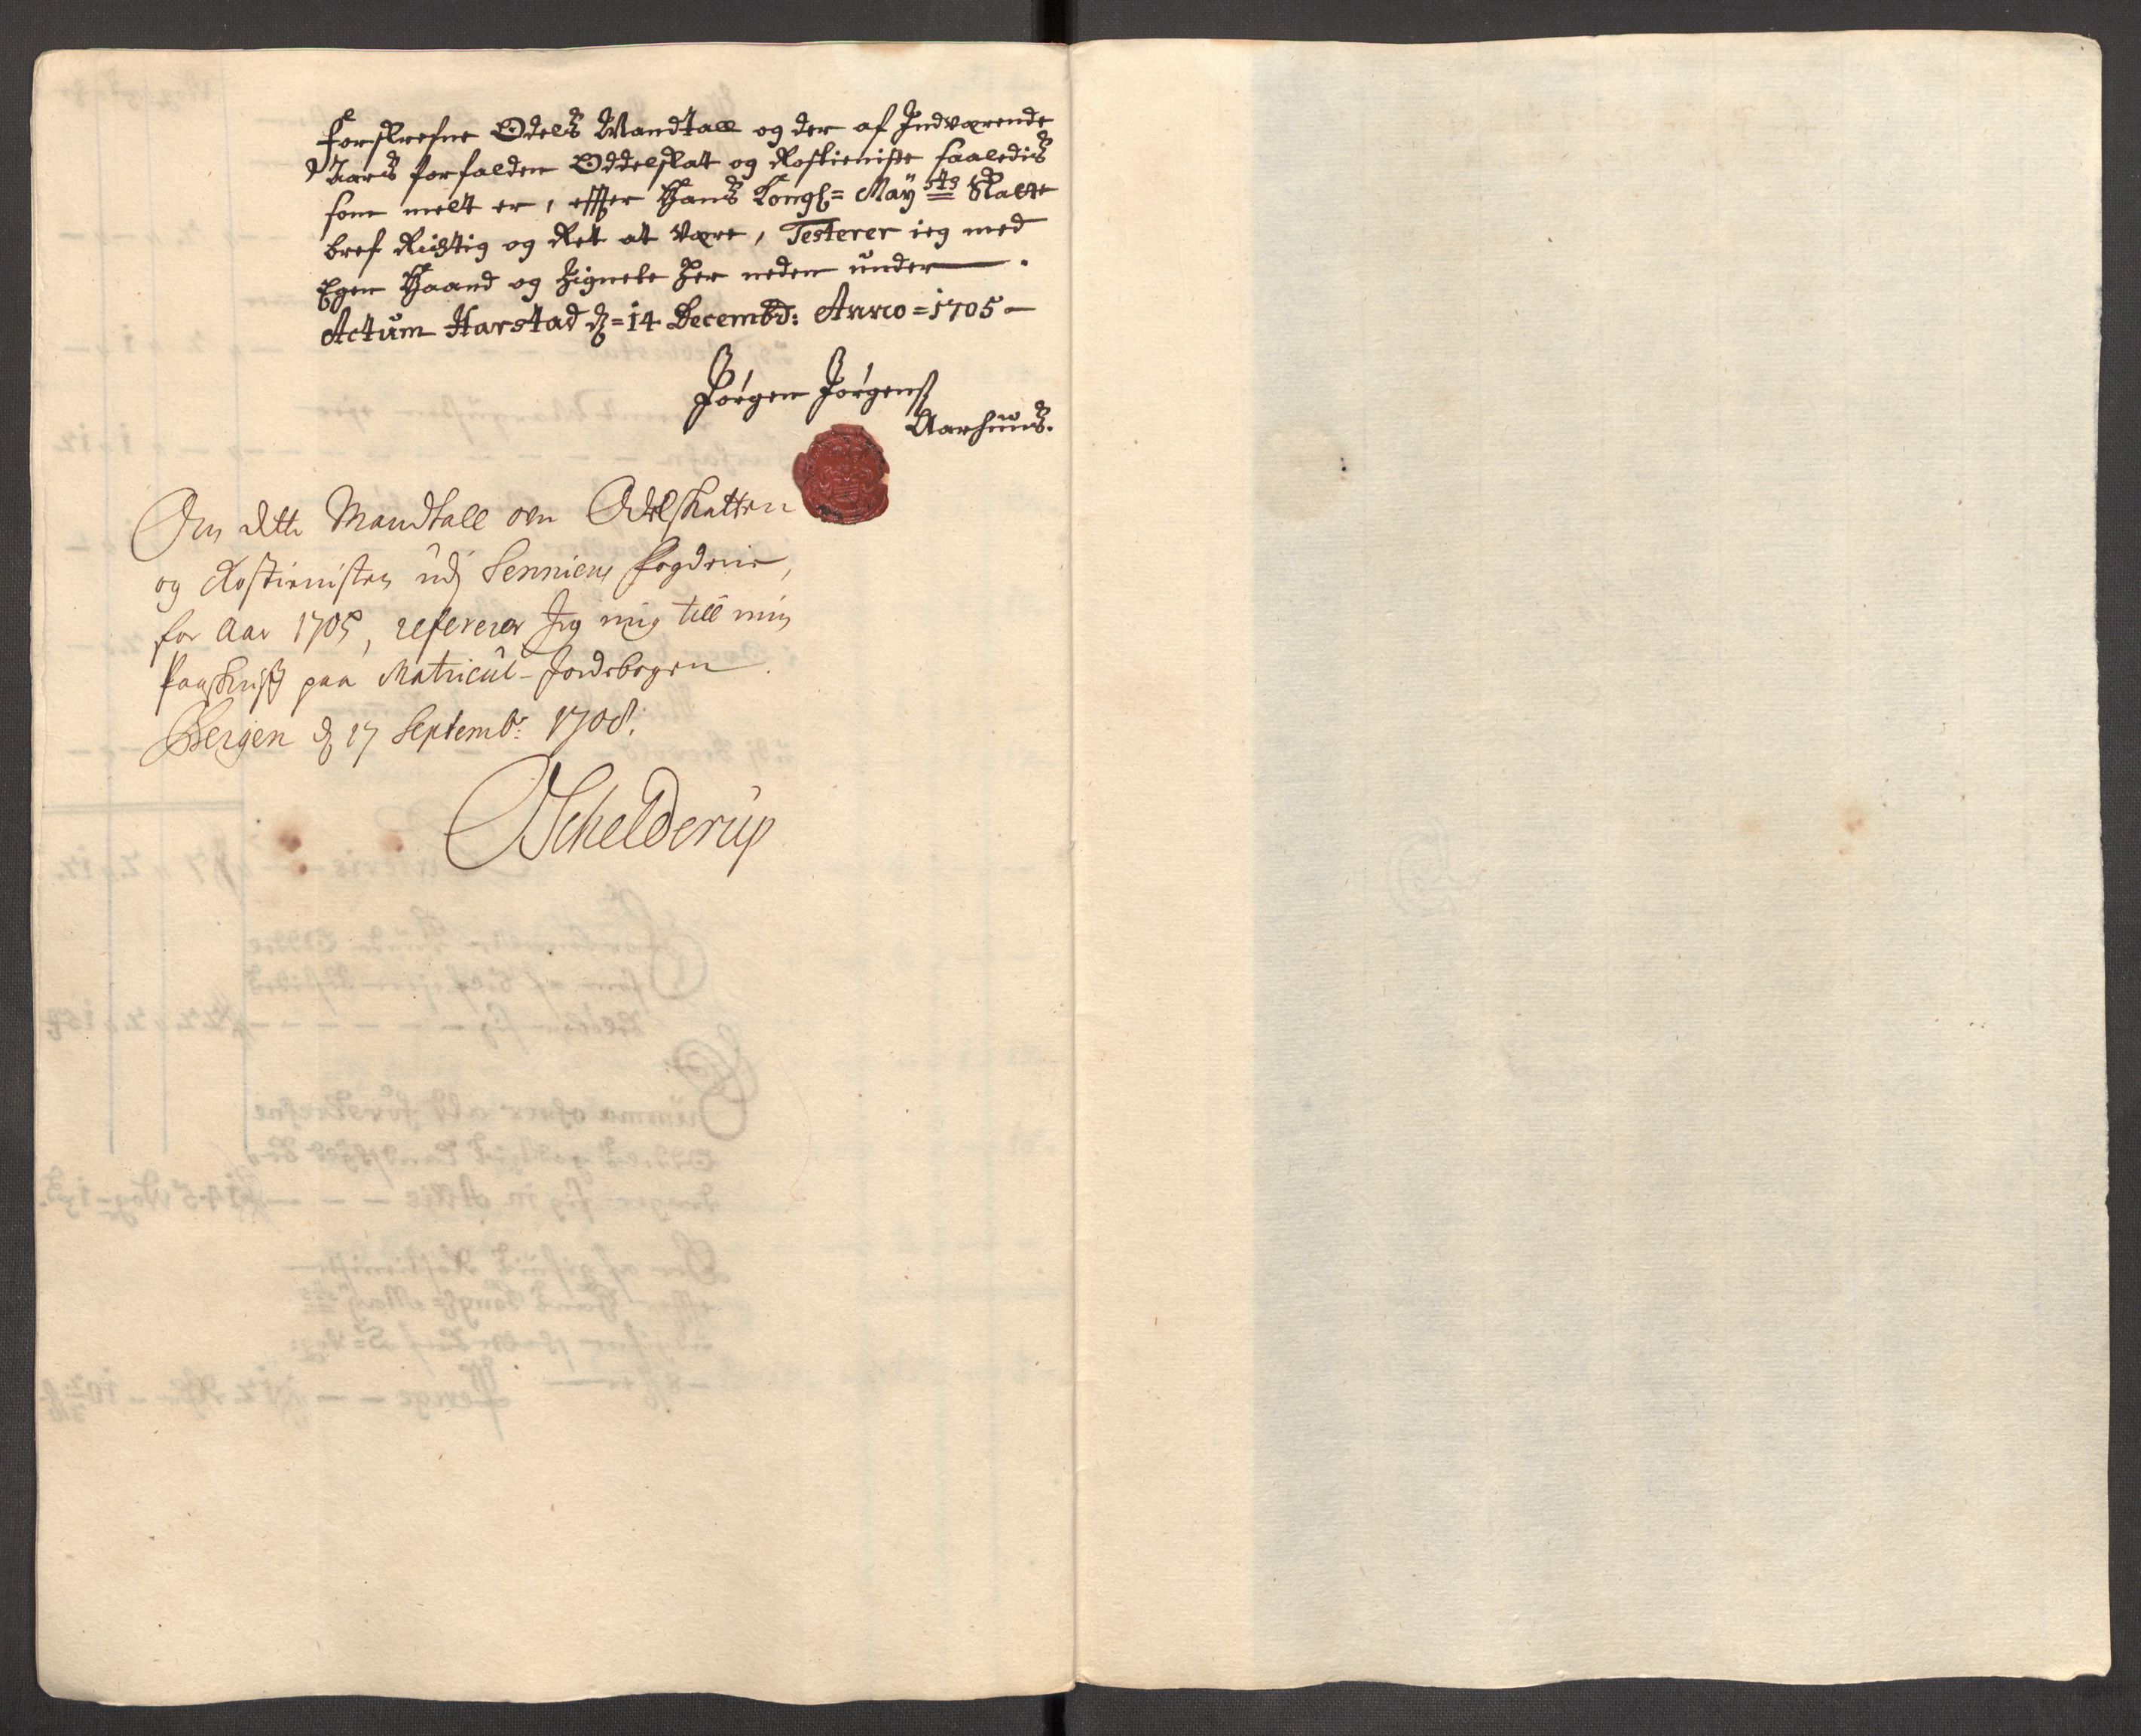 Forskrefne Odels Mandtall og der af Indværende
Aars forfalden Oddelskat og Rostieniste saaledis
som melt er, effter Hans Kongl= May sts Skatte
bref Richtig og Ret at være, Testerer ieg med
Egen Haand og Zignete her neden under.
Actum Harstad d=14 Decembr: Anno=1705-
Jørgen Jørgens
Aarhuus.
Om dette Mandtall over Odelskatten
og Rostienisten udj Senniens fogderie,
for Aar 1705, referer Jeg mig till min
Paaskrift paa Matricul-Jordebogen.
Bergen d 17 Septembr: 1708.
Schelderup